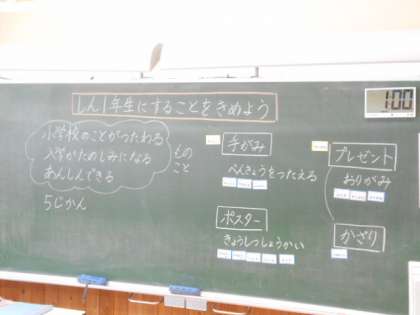 しん1年生にすることをきめよう
1:00
小学校のことがつたわる
入学がたのしみになる
あんしんできる
もの
こと
5じかん
手がみ
べんきょうをつたえる
ポスター
きょうしつしょうかい
プレゼント
おりがみ
かざり